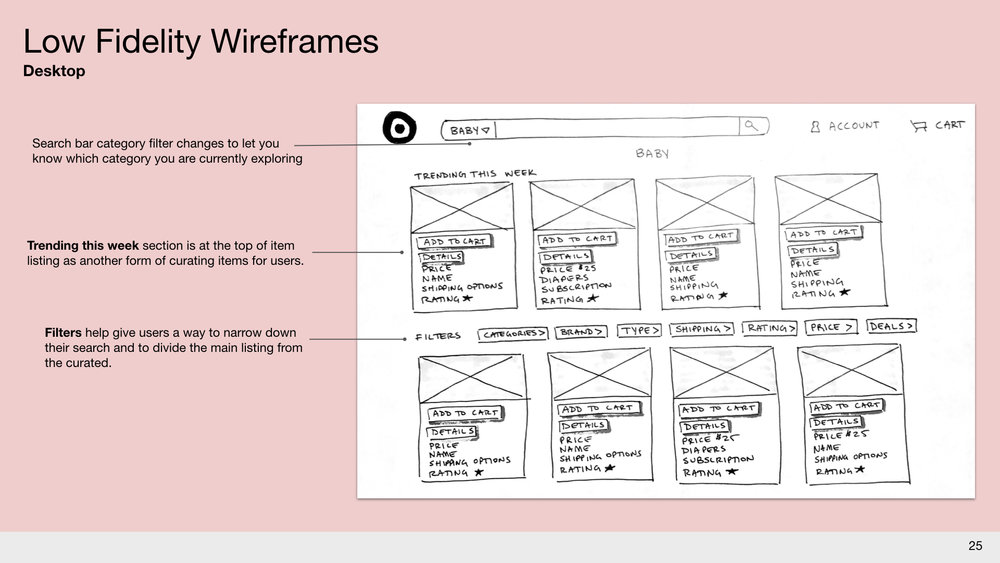 Low Fidelity Wireframes
Desktop
Search bar category filter changes to let you
know which category you are currently exploring
Trending this week section is at the top of item
listing as another form of curating items for users.
Filters help give users a way to narrow down
their search and to divide the main listing from
the curated.
BABY
ACCOUNT
CART
BABY
TRENDING THIS WEEK
ADD TO CART
DETAILS
PRICE
NAME
SHIPPING OPTIONS
RATING ★
ADD TO CART
DETAILS
PRICE $25
DIAPERS
SUBSCRIPTION
RATING ★
ADD TO CART
DETAILS
PRICE
NAME
SHIPPING
RATING ★
ADD TO CART
DETAILS
PRICE
NAME
SHIPPING
RATING ★
FILTERS CATEGORIES> BRAND> TYPE> SHIPPING> RATING> PRICE > DEALS>
ADD TO CART
DETAILS
PRICE
NAME
SHIPPING OPTIONS
RATING ★
ADD TO CART
DETAILS
PRICE
NAME
SHIPPING OPTIONS
RATING ★
ADD TO CART
DETAILS
PRICE $25
DIAPERS
SUBSCRIPTION
RATING ★
ADD TO CART
DETAILS
PRICE $25
NAME
SHIPPING OPTIONS
RATING ★
25